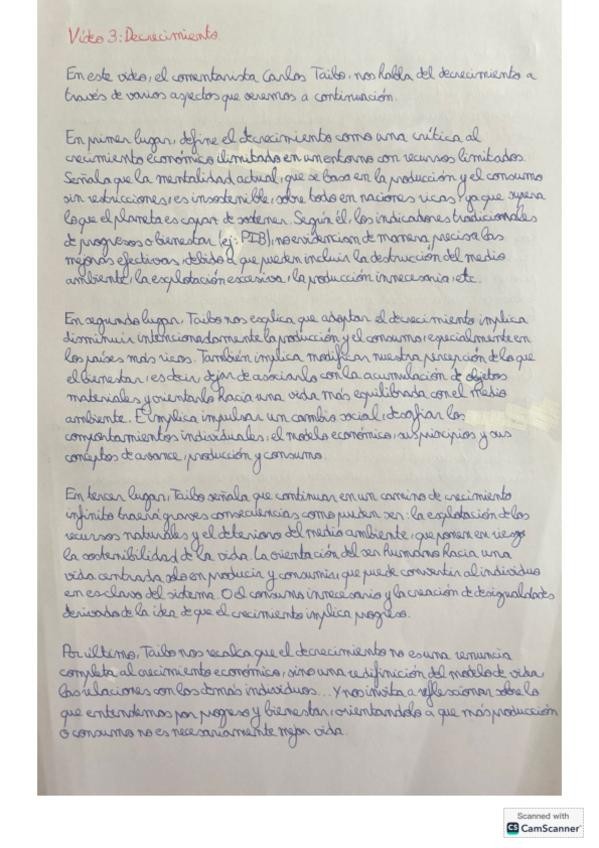 Vídeo 3: Decrecimiento.
En este vídeo, el comentarista Carlos Taibo, nos habla del decrecimiento a
través de varios aspectos que veremos a continuación.
En primer lugar, define el decrecimiento como una crítica al
crecimiento económico ilimitado en un entorno con recursos limitados.
Señala que la mentalidad actual, que se basa en la producción y el consumo
sin restricciones, es insostenible, sobre todo en naciones ricas, ya que supera
lo que el planeta es capaz de sostener. Según él, los indicadores tradicionales
de progresos o bienestar (ej: PIB), no evidencian de manera precisa las
mejoras efectivas, debido a que pueden incluir la destrucción del medio
ambiente, la explotación excesiva, la producción innecesaria, etc.
En segundo lugar, Taibo nos explica que adoptar el decrecimiento implica
disminuir intencionadamente la producción y el consumo, especialmente en
los países más ricos. También implica modificar nuestra percepción de lo que
el bienestar, es decir dejar de asociarlo con la acumulación de objetos
materiales y orientarlo hacia una vida más equilibrada con el medio
ambiente. E implica impulsar un cambio social, desafiar los
comportamientos individuales, el modelo económico, sus principios y sus
conceptos de avance, producción y consumo.
En tercer lugar, Taibo señala que continuar en un camino de crecimiento
infinito traerá graves consecuencias como pueden ser: la explotación de los
recursos naturales y el deterioro del medio ambiente, que ponen en riesgo
la sostenibilidad de la vida. La orientación del ser humano hacia una
vida centrada sólo en producir y consumir, que puede convertir al individuo
en esclavo del sistema. O el consumo innecesario y la creación de desigualdades
derivado de la idea de que el crecimiento implica progreso.
Por último, Taibo nos recalca que el decrecimiento no es una renuncia
completa al crecimiento económico, sino una redefinición del modelo de vida,
las relaciones con los demás individuos... Y nos invita a reflexionar sobre lo
que entendemos por progreso y bienestar, orientandolo a que más producción
o consumo no es necesariamente mejor vida.
Scanned with
CS CamScanner